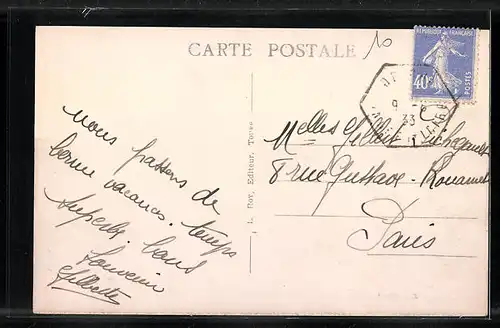 CARTE POSTALE
10
RÉPUBLIQUE FRANÇAISE
40c
POSTES
9 - 8
33
nous passons de
bonne vacances. temps
superbe. bons
souvenirs
Gilberte
J. L. Roy, Editeur, Tours
Melles Gilbert
8 rue Gustave - Rouanet
Paris